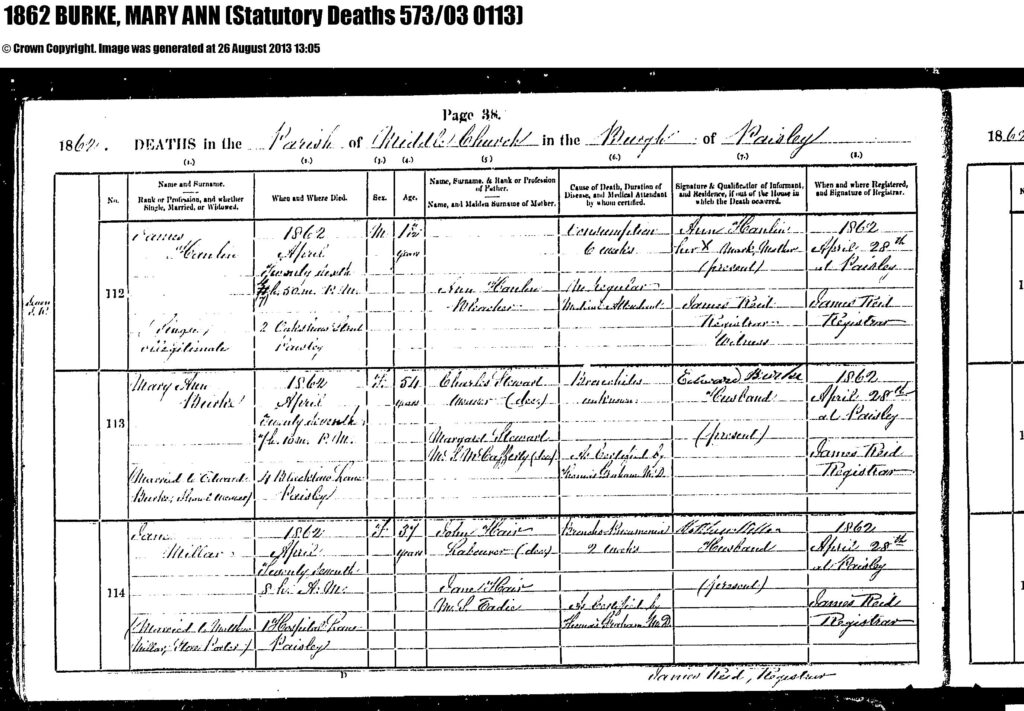 1862 BURKE, MARY ANN (Statutory Deaths 573/03 0113)
© Crown Copyright. Image was generated at 26 August 2013 13:05
Page 38.
1862. DEATHS in the Parish of Middle Church in the Burgh of Paisley
186
(1.) (2.) (3.) (4.) (5) (6.) (7.) (8.)
No.
Name and Surname.
Rank or Profession, and whether Single, Married, or Widowed.
When and Where Died.
Sex.
Age.
Name, Surname, & Rank or Profession of Father.
Name, and Maiden Surname of Mother.
Cause of Death, Duration of Disease, and Medical Attendant by whom certified.
Signature & Qualification of Informant, and Residence, if out of the House in which the Death occurred.
When and where Registered, and Signature of Registrar.
112
James
Hanlin
(Single)
Illegitimate
1862
April
Twenty sixth
h. 50 m. P.M.
2 Street
Paisley
M
years
Ann Hanlin
Bleacher
Consumption
6 weeks
No Regular
Medical Attendant
Ann Hanlin
her X Mark, Mother
(present)
James Reid
Registrar
Witness
1862
April 28th
at Paisley
James Reid
Registrar
113
Mary Ann
Burke
Married to Edward
Burke,
1862
April
Twenty seventh
7 h. 10 m. P.M.
4 Lane
Paisley
F.
54
years
Charles Stewart
Weaver (dec)
Margaret Stewart
M.S. McCafferty (dec)
Bronchitis
unknown
As Certified by
Thomas Graham M.D.
Edward Burke
Husband
(present)
1862
April 28th
at Paisley
James Reid
Registrar
114
Jane
Millar
(Married to Matthew
Millar, Store Porter)
1862
April
Twenty seventh
8 h. A.M.
1 Hospital Lane
Paisley
F
37
years
John Hair
Labourer (dec)
Jane Hair
M.S. Eadie
Broncho Pneumonia
2 weeks
As Certified by
Thomas Graham M.D.
Matthew Millar
Husband
(present)
1862
April 28th
at Paisley
James Reid
Registrar
D
James Reid, Registrar